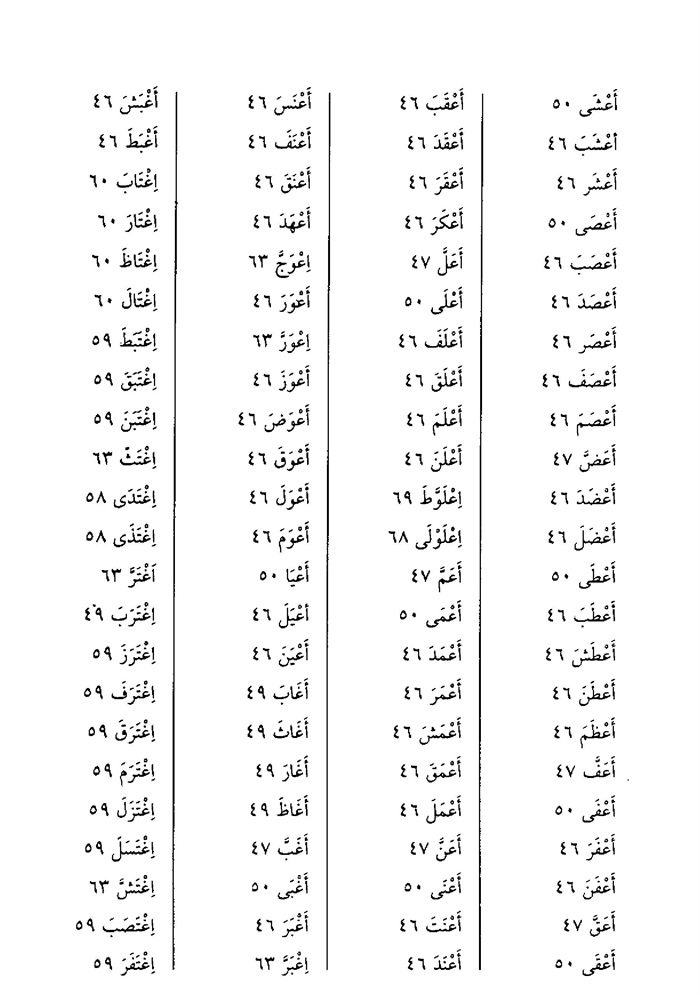 أَعْشَى ٥٠
أعْشَبَ ٤٦
أَعْشَر ٤٦
أَعْصَى ٥٠
أَعْصَبَ ٤٦
أَعْصَدَ ٤٦
أَعْصَر ٤٦
أَعْصَفَ ٤٦
أَعْصَمَ ٤٦
أَعَضَّ ٤٧
أَعْضَدَ ٤٦
أَعْضَلَ ٤٦
أَعْطَى ٥٠
أَعْطَبَ ٤٦
أَعْطَشَ ٤٦
أَعْطَنَ ٤٦
أَعْظَمَ ٤٦
أَعَفَّ ٤٧
أَعْفَى ٥٠
أَعْفَرَ ٤٦
أَعْفَنَ ٤٦
أَعَقَّ ٤٧
أَعْقَى ٥٠
أَعْقَبَ ٤٦
أَعْقَدَ ٤٦
أَعْقَرَ ٤٦
أَعْكَرَ ٤٦
أَعَلَّ ٤٧
أَعْلَى ٥٠
أَعْلَفَ ٤٦
أَعْلَقَ ٤٦
أَعْلَمَ ٤٦
أَعْلَنَ ٤٦
اِعْلَوَّطَ ٦٩
اِعْلَوْلَى ٦٨
أَعَمَّ ٤٧
أَعْمَى ٥٠
أَعْمَدَ ٤٦
أَعْمَرَ ٤٦
أَعْمَشَ ٤٦
أَعْمَقَ ٤٦
أَعْمَلَ ٤٦
أَعَنَّ ٤٧
أَعْنَى ٥٠
أَعْنَتَ ٤٦
أَعْنَدَ ٤٦
أَعْنَسَ ٤٦
أَعْنَفَ ٤٦
أَعْنَقَ ٤٦
أَعْهَدَ ٤٦
اِعْوَجَّ ٦٣
أَعْوَرَ ٤٦
اِعْوَرَّ ٦٣
أَعْوَزَ ٤٦
أَعْوَضَ ٤٦
أَعْوَقَ ٤٦
أَعْوَلَ ٤٦
أَعْوَمَ ٤٦
أَعْيَا ٥٠
أعْيَلَ ٤٦
أَعْيَنَ ٤٦
أَغَابَ ٤٩
أَغَاثَ ٤٩
أَغَارَ ٤٩
أَغَاظَ ٤٩
أَغَبَّ ٤٧
أَغْبَى ٥٠
أَغْبَرَ ٤٦
اِغْبَرَّ ٦٣
أَغْبَشَ ٤٦
أَغْبَطَ ٤٦
اِغْتَابَ ٦٠
اِغْتَارَ ٦٠
اِغْتَاظَ ٦٠
اِغْتَالَ ٦٠
اِغْتَبَطَ ٥٩
اِغْتَبَقَ ٥٩
اِغْتَبَنَ ٥٩
اِغْتَثّ ٦٣
اِغْتَدَى ٥٨
اِغْتَذَى ٥٨
اَغْتَرَّ ٦٣
اِغْتَرَبَ ٤٩
اِغْتَرَزَ ٥٩
اِغْتَرَفَ ٥٩
اِغْتَرَقَ ٥٩
اِغْتَرَمَ ٥٩
اِغْتَزَلَ ٥٩
اِغْتَسَلَ ٥٩
اِغْتَشَّ ٦٣
اِغْتَصَبَ ٥٩
اِغْتَفَرَ ٥٩